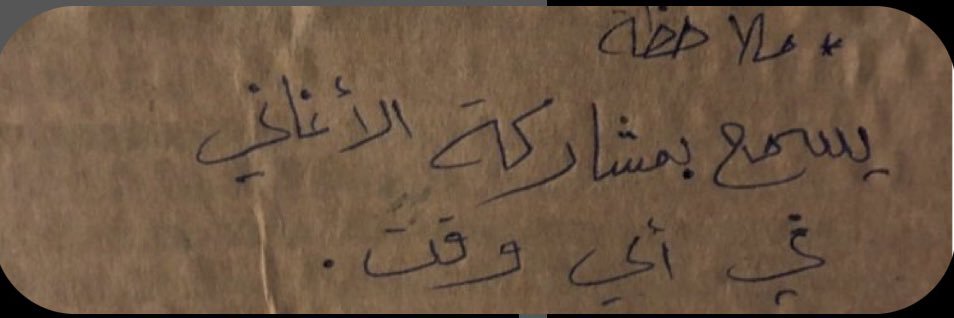 * ملاحظة
يسمح بمشاركة الأغاني
في أي وقت .